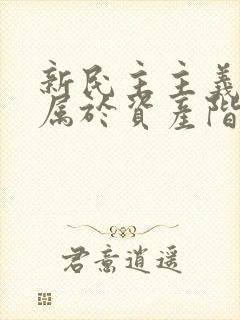 新民主主義
属於資產階
君意逍遥